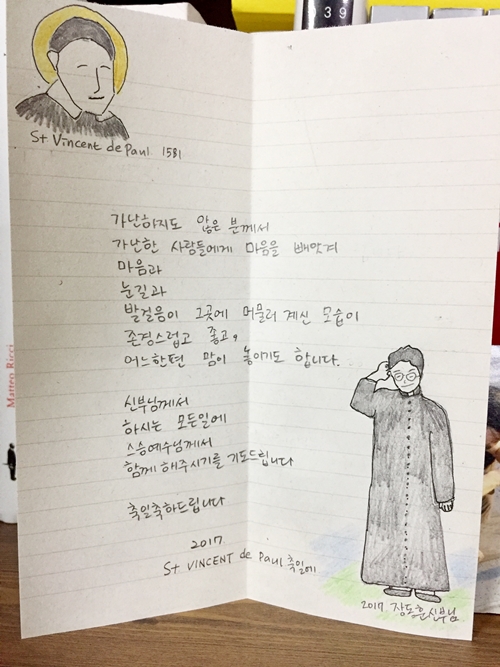 39
St Vincent de Paul 1581
가난하지도 않은 분께서
가난한 사람들에게 마음을 빼앗겨
마음과
눈길과
발걸음이 그곳에 머물러 계신 모습이
존경스럽고 좋고,
어느한편 맘이 놓이기도 합니다.
신부님께서
하시는 모든일에
스승예수님께서
함께 해주시기를 기도드립니다
축일축하드립니다
2017
St VINCENT de Paul 축일에
2017 장도훈신부님
Matteo Ricci